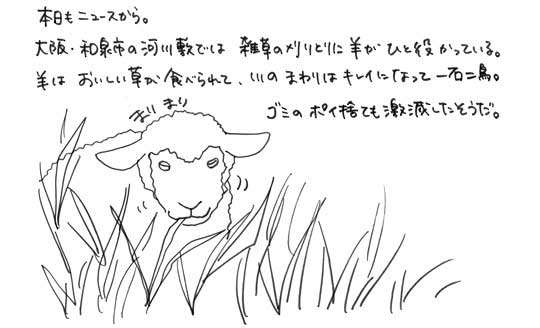 本日もニュースから。
大阪・和泉市の河川敷では 雑草の刈りとりに羊がひと役かっている。
羊は おいしい草が食べられて、川のまわりはキレイになって一石二鳥。
ゴミのポイ捨ても激減したそうだ。
むしゃむしゃ